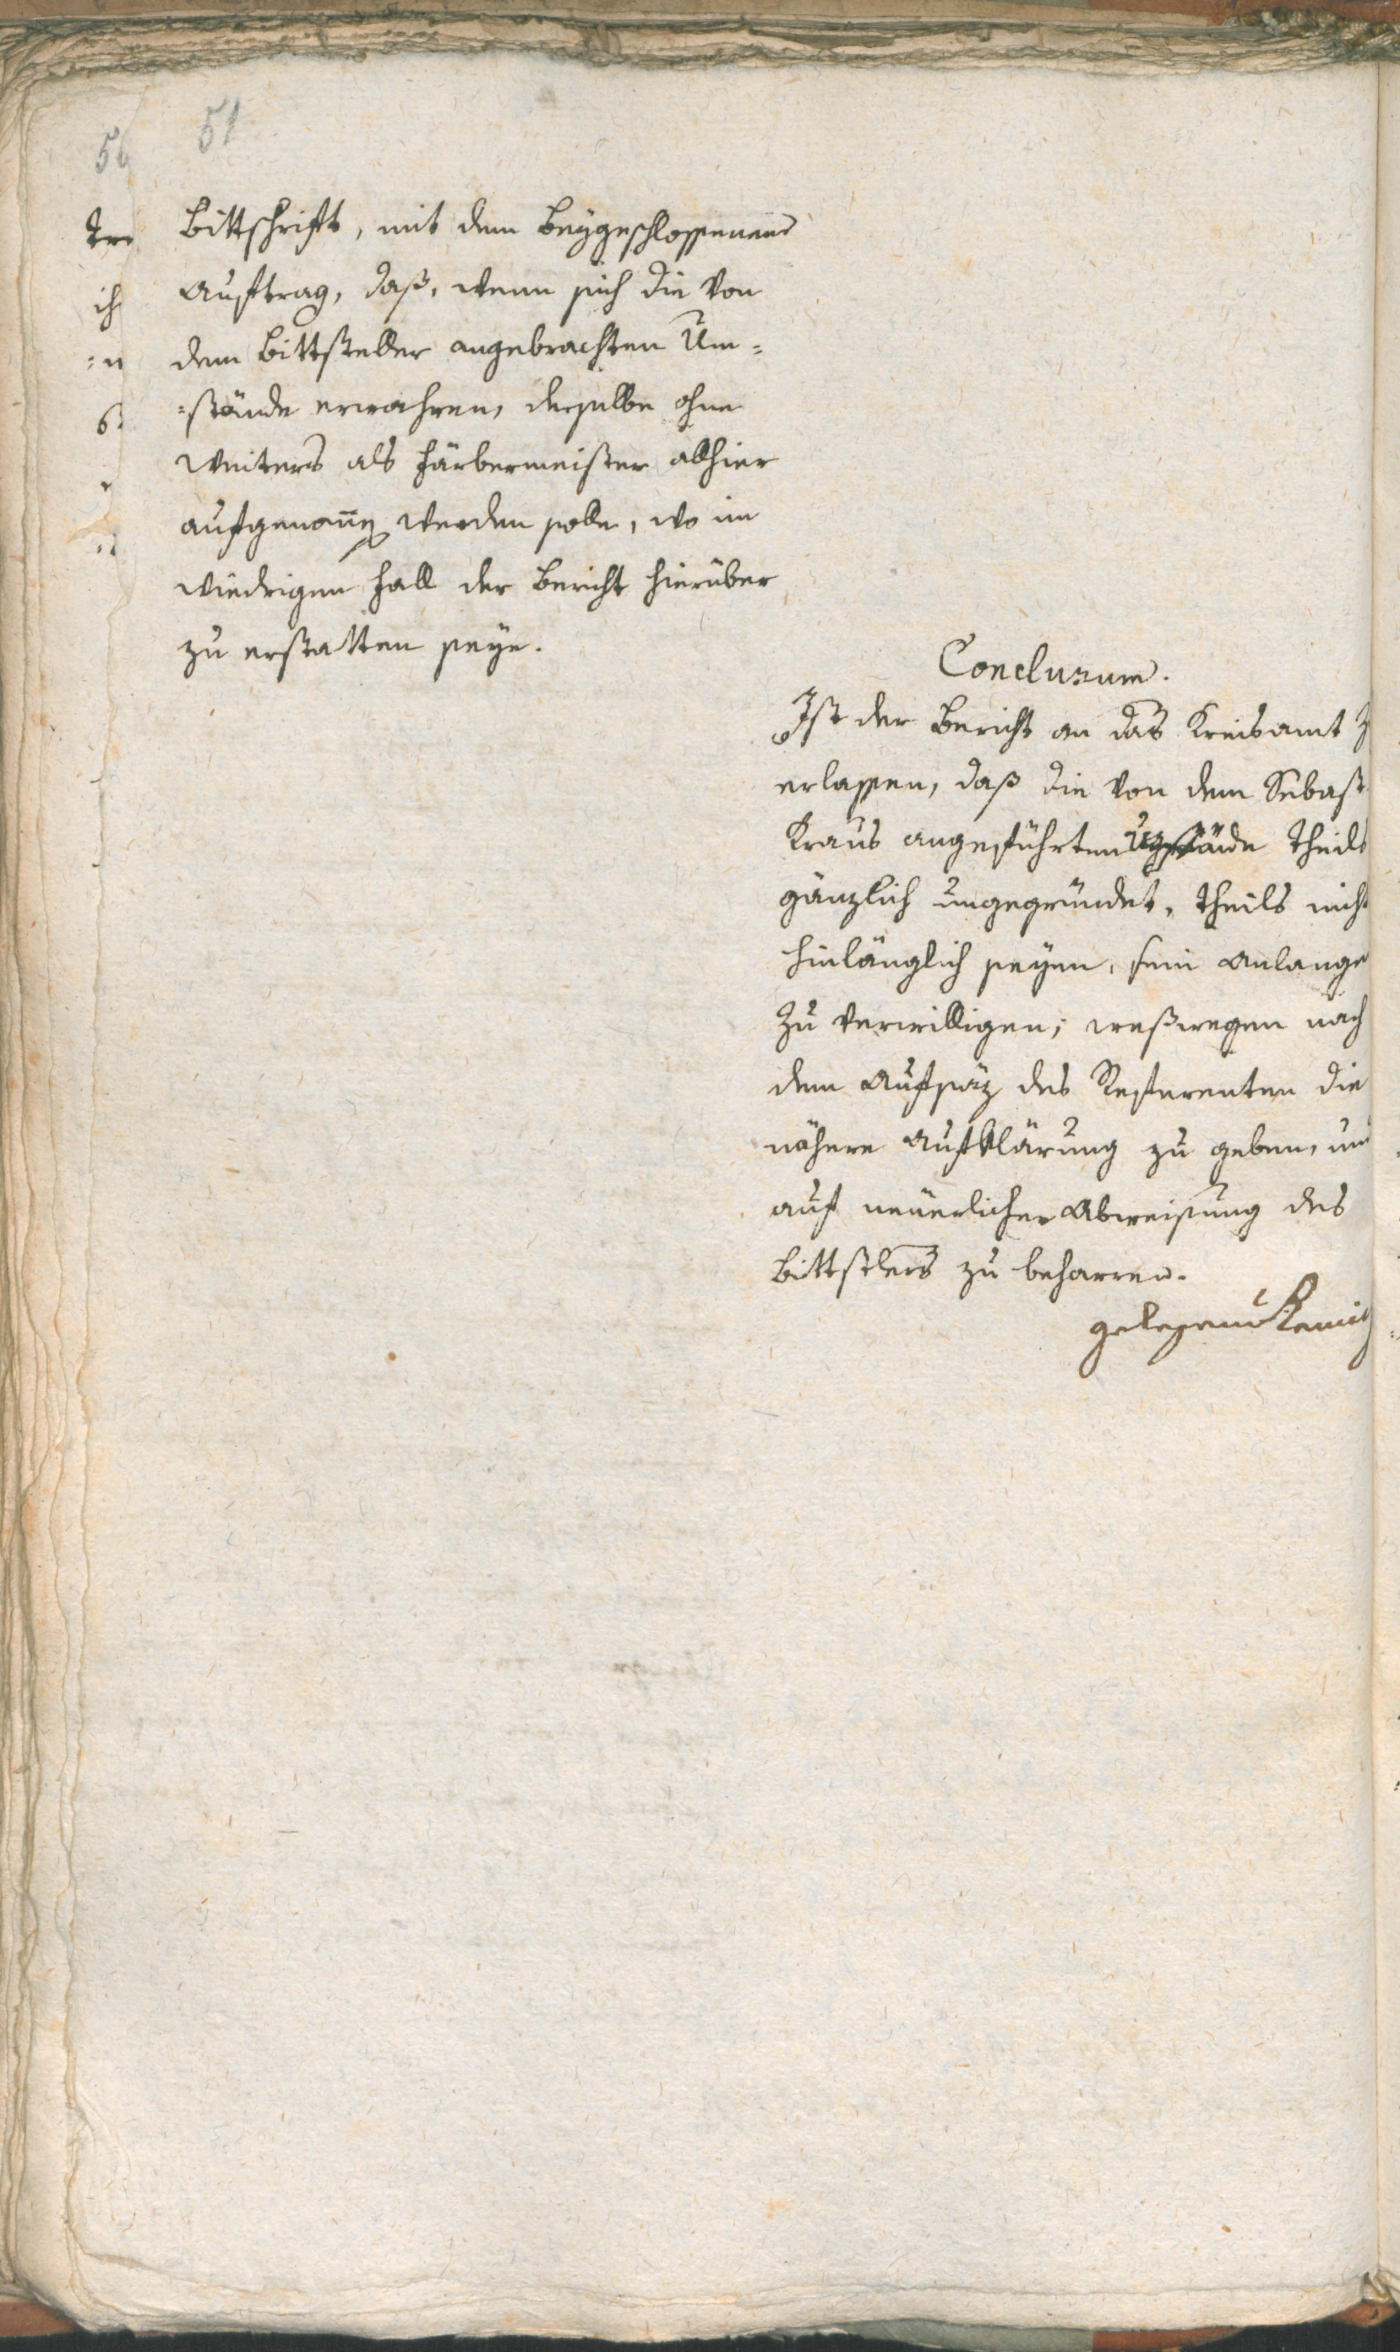 51
Bittschrift, mit dem beygeschlossenen
Auftrag, daß, wenn sich die von
dem Bittsteller angebrachten Um=
=stände erwahren, derselbe ohne
Weiters als Färbermeister allhier
aufgenom̄en werden solle, wo im
wiedrigen Fall der Bericht hierüber
zu erstatten seye.
Conclusum.
Ist der Bericht an das Kreisamt z
erlassen, daß die von dem Sebast
Kraus angeführten Umstände theils
gänzlich ungegründet, theils nicht
hinlänglich seyen, sein Anlange
zu verwilligen; weßwegen nach
dem Aufsaz des Referenten die
nähere Aufklärung zu geben, und
auf neuerlicher Abweisung des
Bittstlers zu beharren.